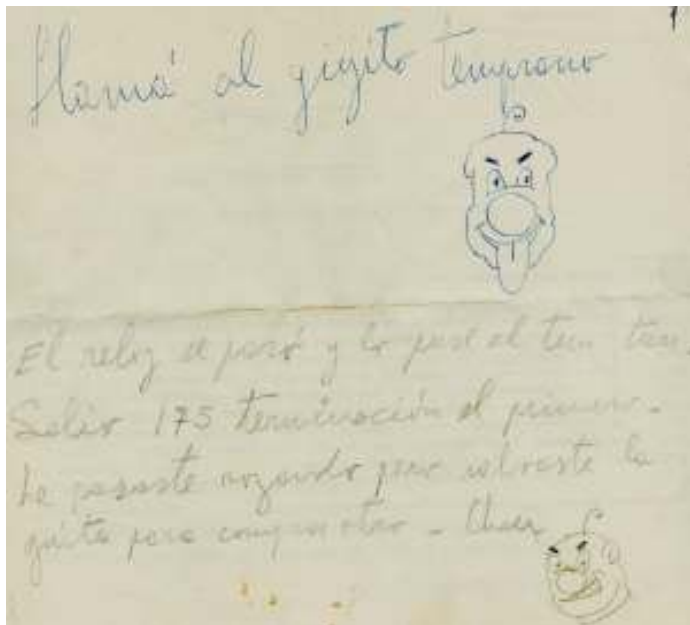 llamá al giyito temprano
El reloj se paró y lo puse al tun tun.
Salió 175 terminación al primero.
Le pasaste rozando pero cobraste la
guita para comprar otro - Chau